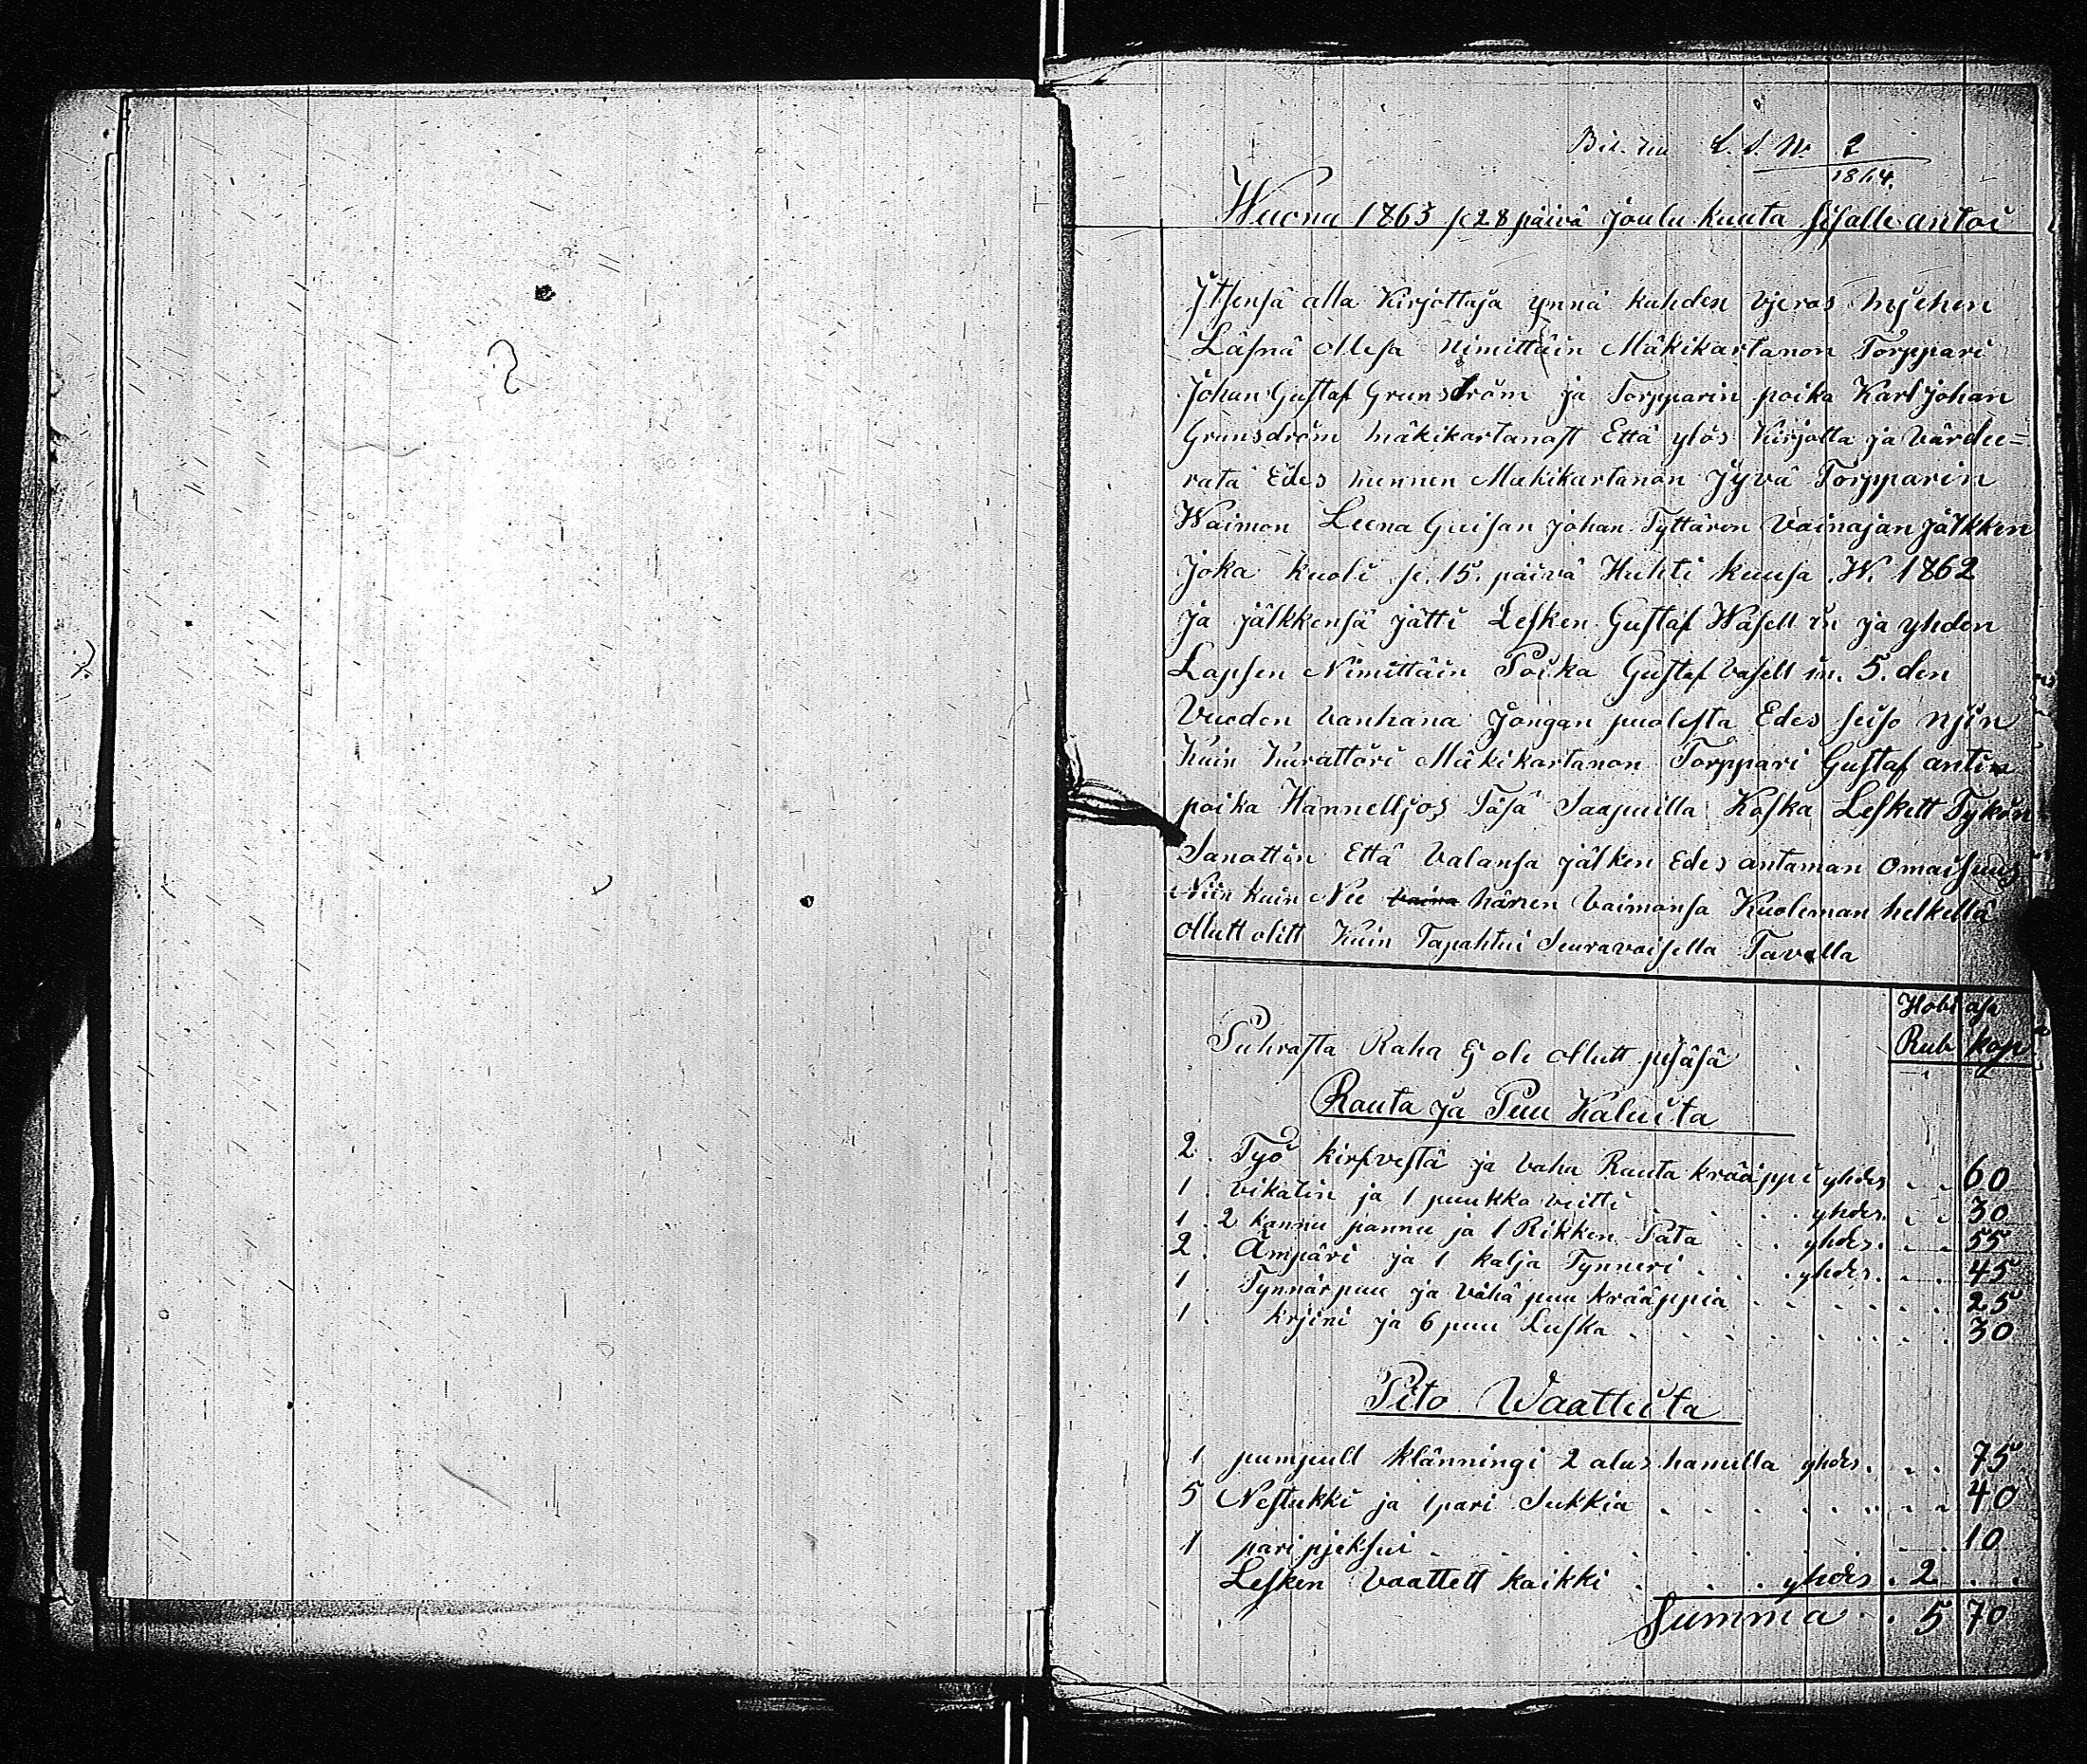 L. S. No 2
1864.
Wuona 1863 se 28 päivä joulu kuuta sisälle antoi
Itsensä alla Kirjottaja ynnä kahden vjeras mjehen
Läsnä ollesa nimittäin Mäkikartanon Torppari
Johan Gustaf Grunström ja Torpparin poika Karl Johan
Grunsdröm mäkikartanost Että ylös Kirjotta ja värdee=
rata Edes mennen Mäkikartanon Jyvä Torpparin
Waimon Leena Guisan Johan Tyttären Vainajan jälkken
Joka kuoli se. 15. päivä Huhti kuusa W. 1862
Ja jälkkensä jätti Lesken Gustaf Wäsell in ja yhden
Lapsen Nimittäin Poika Gustaf Vasell in. 5. den
Vuoden vanhana Jongan puolesta Edes seiso njin
Kuin Kurattori Mäkikartanon Torppari Gustaf antin
poika Hannelljos Täsä Saapuilla Koska Leskelt Tykön
Sanottin Että Valansa jälken Edes antaman Omaisuus
Niin kuin Ne vaina hänen Vaimonsa Kuoleman helkellä
ollutt olitt Kuin Tapahtui Seuravaisella Tavalla
Hobiasa
Rub kop
Puhrasta Raha Ej ole ollutt pesäsä
Rauta ja Puu Kaluita
2. Työ kirfvestä ja vaha Rauta krääppi yhdes . . 60
1. vikatin ja 1 puukko veitti . . . yhdes . . 30
1. 2 kannu pannu ja 1 Rikken Pata . . yhdes . . 55
2. Ämpäri ja 1 kalja Tynneri . . . yhdes . . 45
1. Tynnärpuu ja vähä puu krääppiä . . . . . . 25
1. krjini ja 6 puu Luska . . . . . . . 30
Pito Waatteita
1 pumpull klänningi 2 alus hametta yhdes . . . 75
5 Nestukki ja 1 pari Sukkia . . . . . . . 40
1 pari pjeksui . . . . . . . . 10
Lesken vaattett kaikki . . . yhdes . 2 . .
Summa . . 5 70